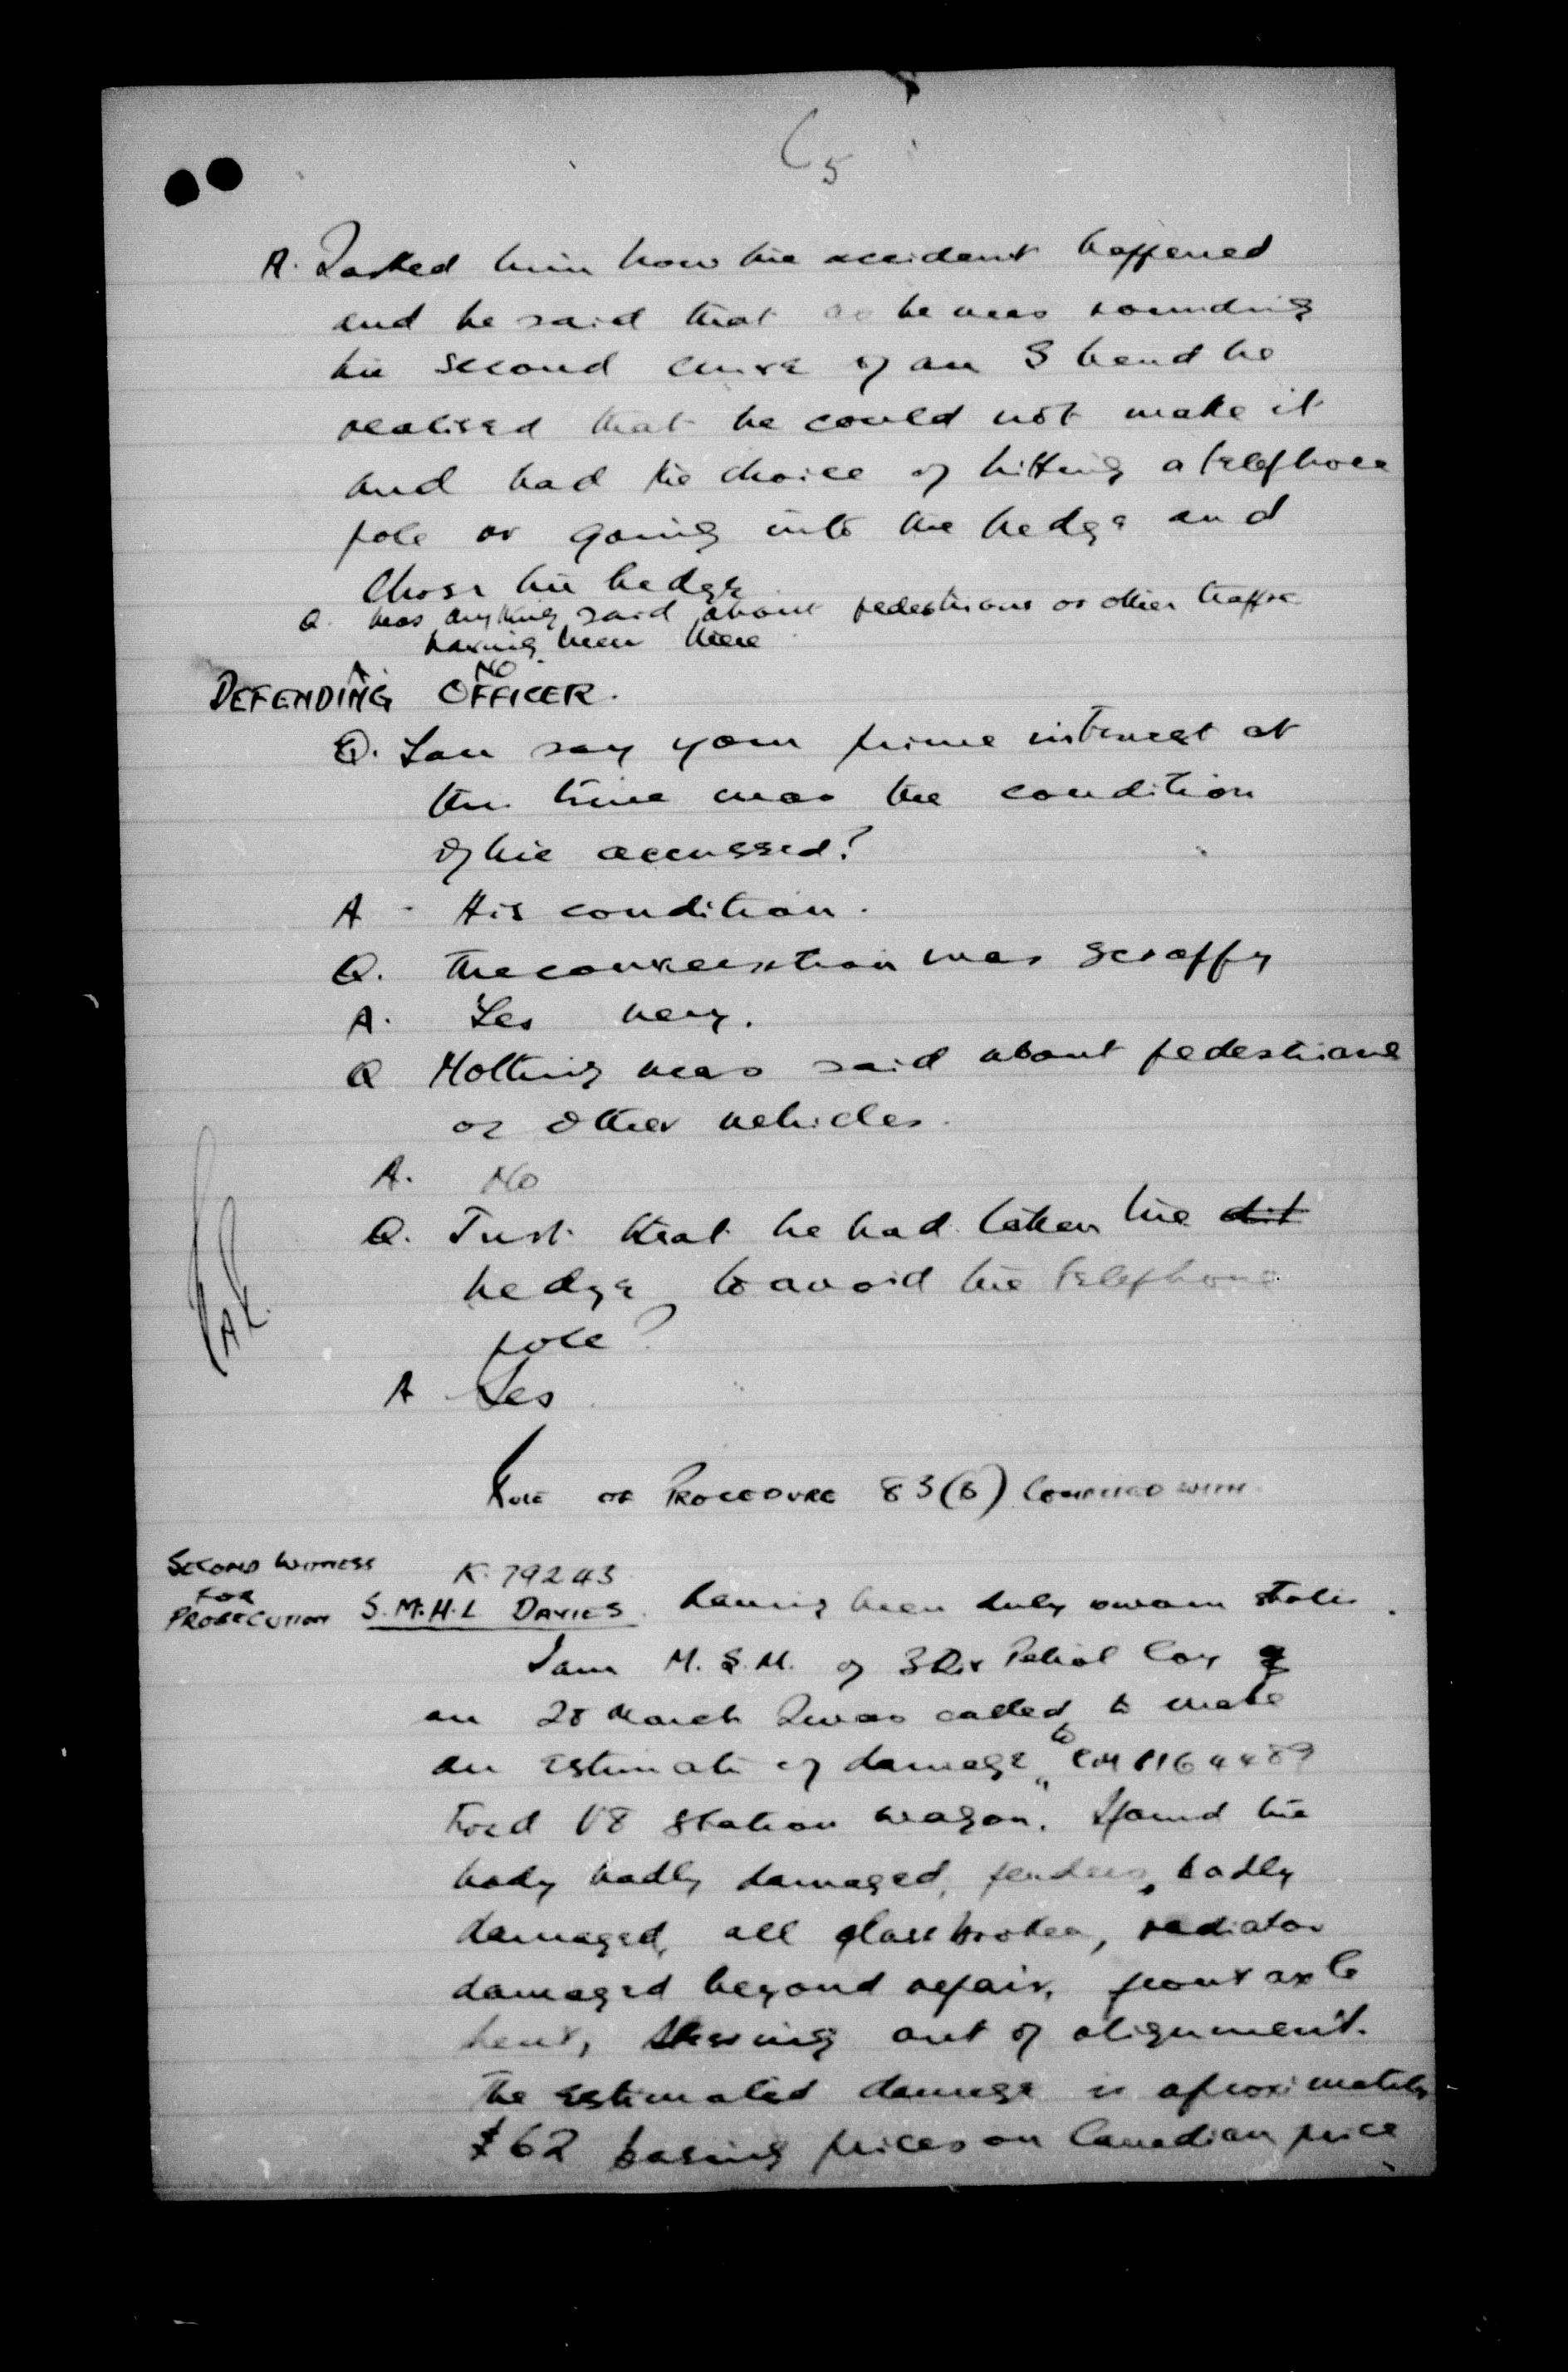 5
A. I asked him how the accident happened
and he said that as he was rounding
the second curve of an S bend he
realised that he could not make it
and had the choice of hitting a telephone
pole or going into the hedge and
chose the hedge
Q. Was anything said about pedestrians or other traffic
having been there
A. NO
DEFENDING OFFICER.
Q. You say your prime interest at
the time was the condition
of the accussed?
A - His condition.
Q. The conversation was scrappy
A. Yes very.
Q Nothing was said about pedestrians
or other vehicles.
A. No
Q. Just that he had taken the dit
hedge to avoid the telephone
pole?
A Yes
RULE OF PROCEDURE 83(B) COMPLIED WITH.
SECOND WITNESS
FOR
PROSECUTION
K. 79243
S.M. H.L DAVIES. having been duly sworn states.
I am M.S.M. of 3 Div Petrol Coy
on 28 March I was called to make
an estimate of damage to CM 1164489
Ford V8 station wagon. I found the
body badly damaged, fenders badly
damaged, all glass broken, radiator
damaged beyond repair, front axle
bent, steering out of alignment.
The estimated damage is aproximately
£62 basing prices on Canadian price